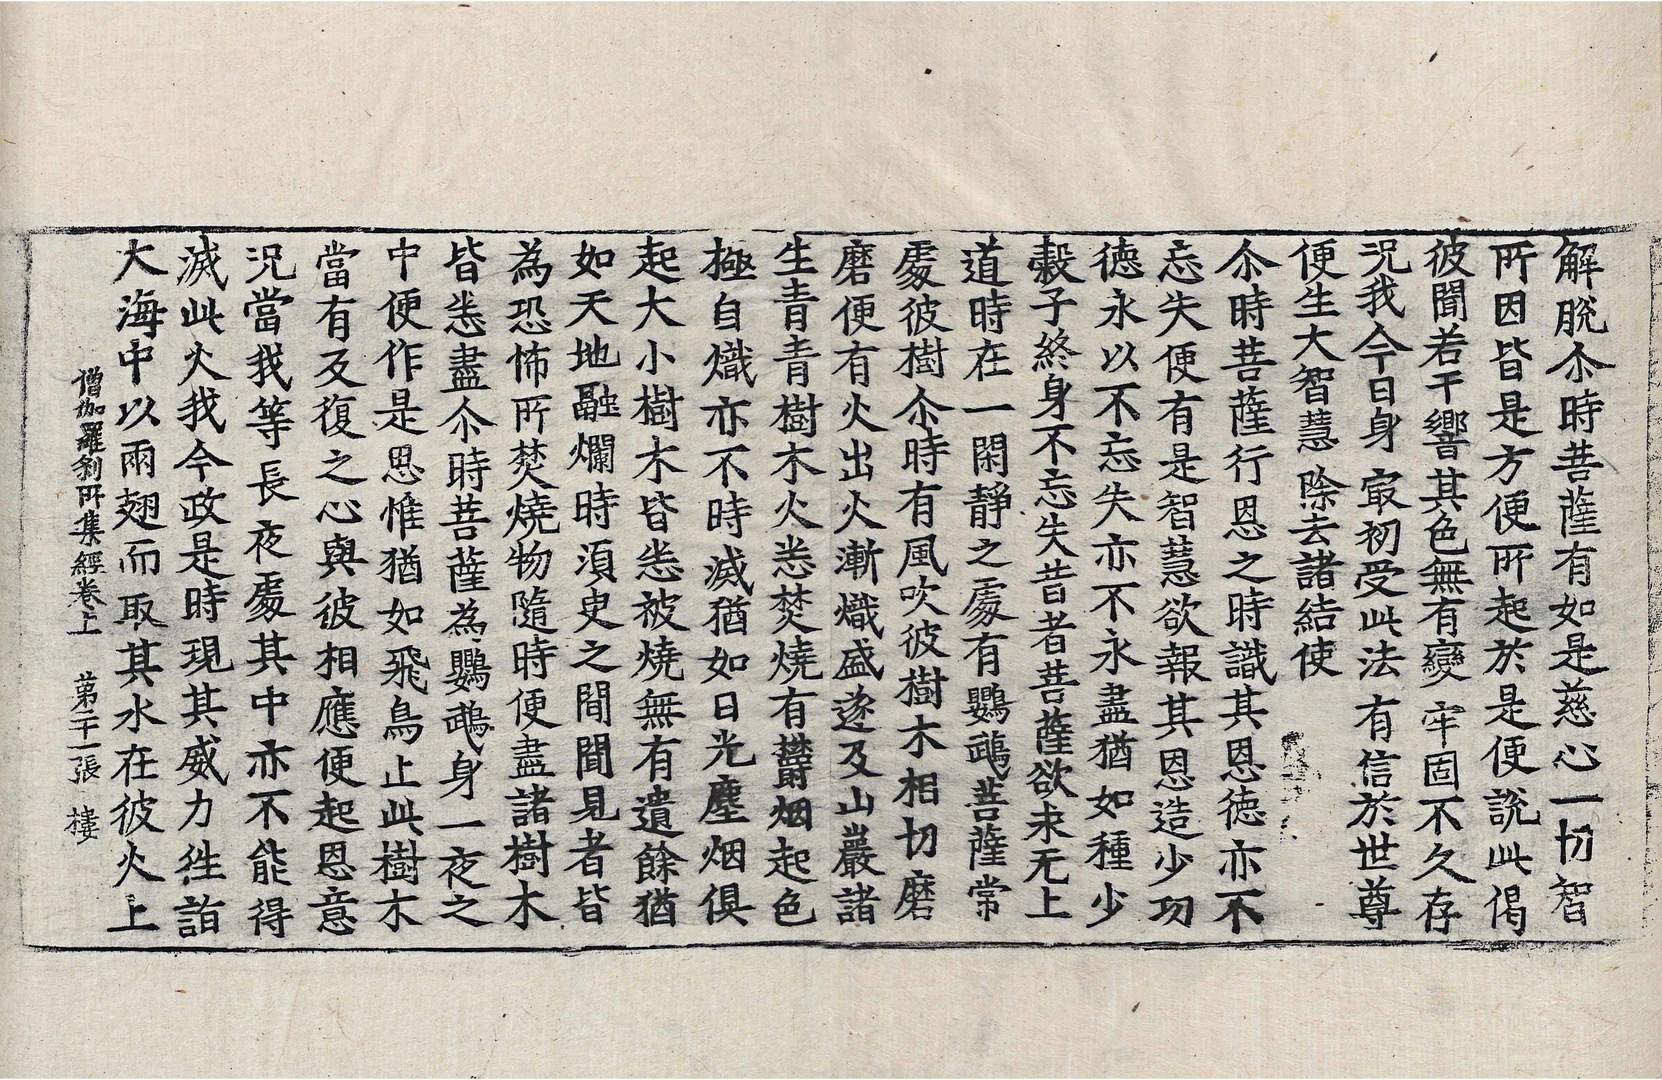 解脫尒時菩薩有如是慈心一切智
所因皆是方便所起於是便說此偈
彼聞若干響其色無有變牢固不久存
況我今日身冣初受此法有信於世尊
便生大智慧除去諸結使
尒時菩薩行恩之時識其恩德亦不
忘失便有是智慧欲報其恩造少功
德永以不忘失亦不永盡猶如種少
穀子終身不忘失昔者菩薩欲求无上
道時在一閑靜之處有鸚鵡菩薩常
處彼樹尒時有風吹彼樹木相切磨
磨便有火出火漸熾盛遂及山巖諸
生青青樹木火悉焚燒有欝烟起色
極自熾亦不時滅猶如日光塵烟俱
起大小樹木皆悉被燒無有遺餘猶
如天地融爛時湏臾之間聞見者皆
為恐怖所焚燒物隨時便盡諸樹木
皆悉盡尒時菩薩為鸚鵡身一夜之
中便作是思惟猶如飛鳥止此樹木
當有反復之心與彼相應便起恩意
況當我等長夜處其中亦不能得
滅此火我今政是時現其威力徃詣
大海中以兩翅而取其水在彼火上
僧伽羅刹所集經卷上 第二十一張 樓